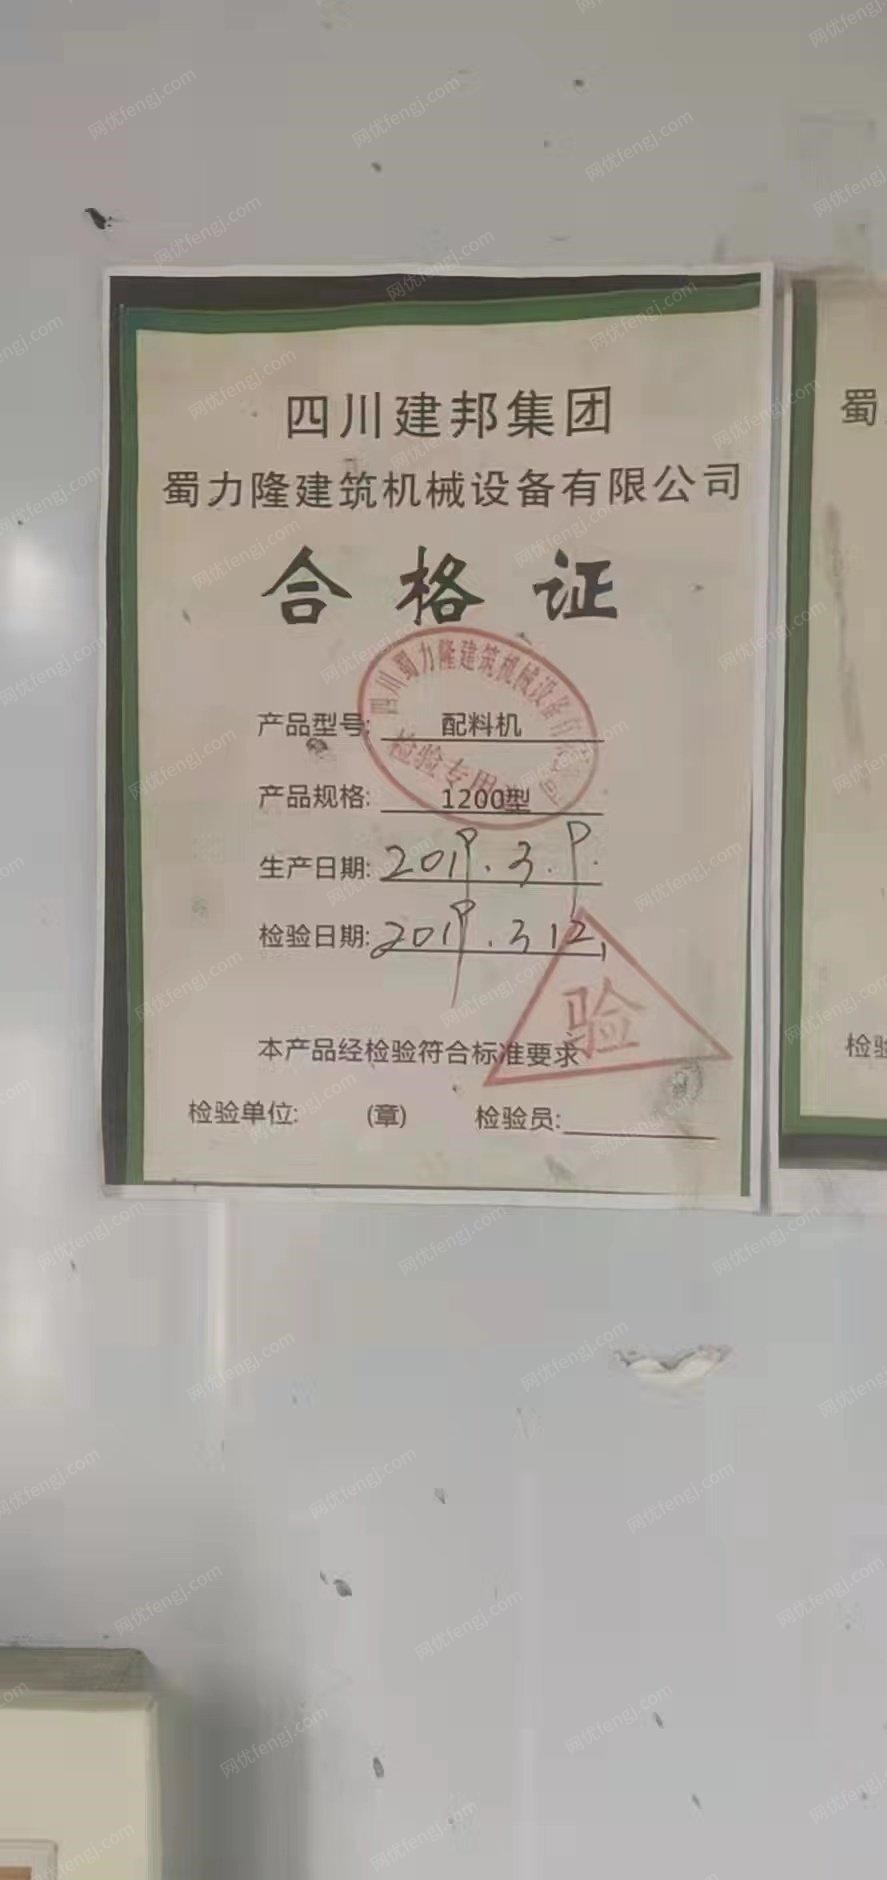 四川建邦集团
蜀力隆建筑机械设备有限公司
合格证
四川蜀力隆建筑机械设备有限公司
检验专用章
产品型号: 配料机
产品规格: 1200型
生产日期: 2019.3.9.
检验日期: 2019.3.12.
验
本产品经检验符合标准要求
检验单位: (章) 检验员:
蜀
检验
网优fengj.com